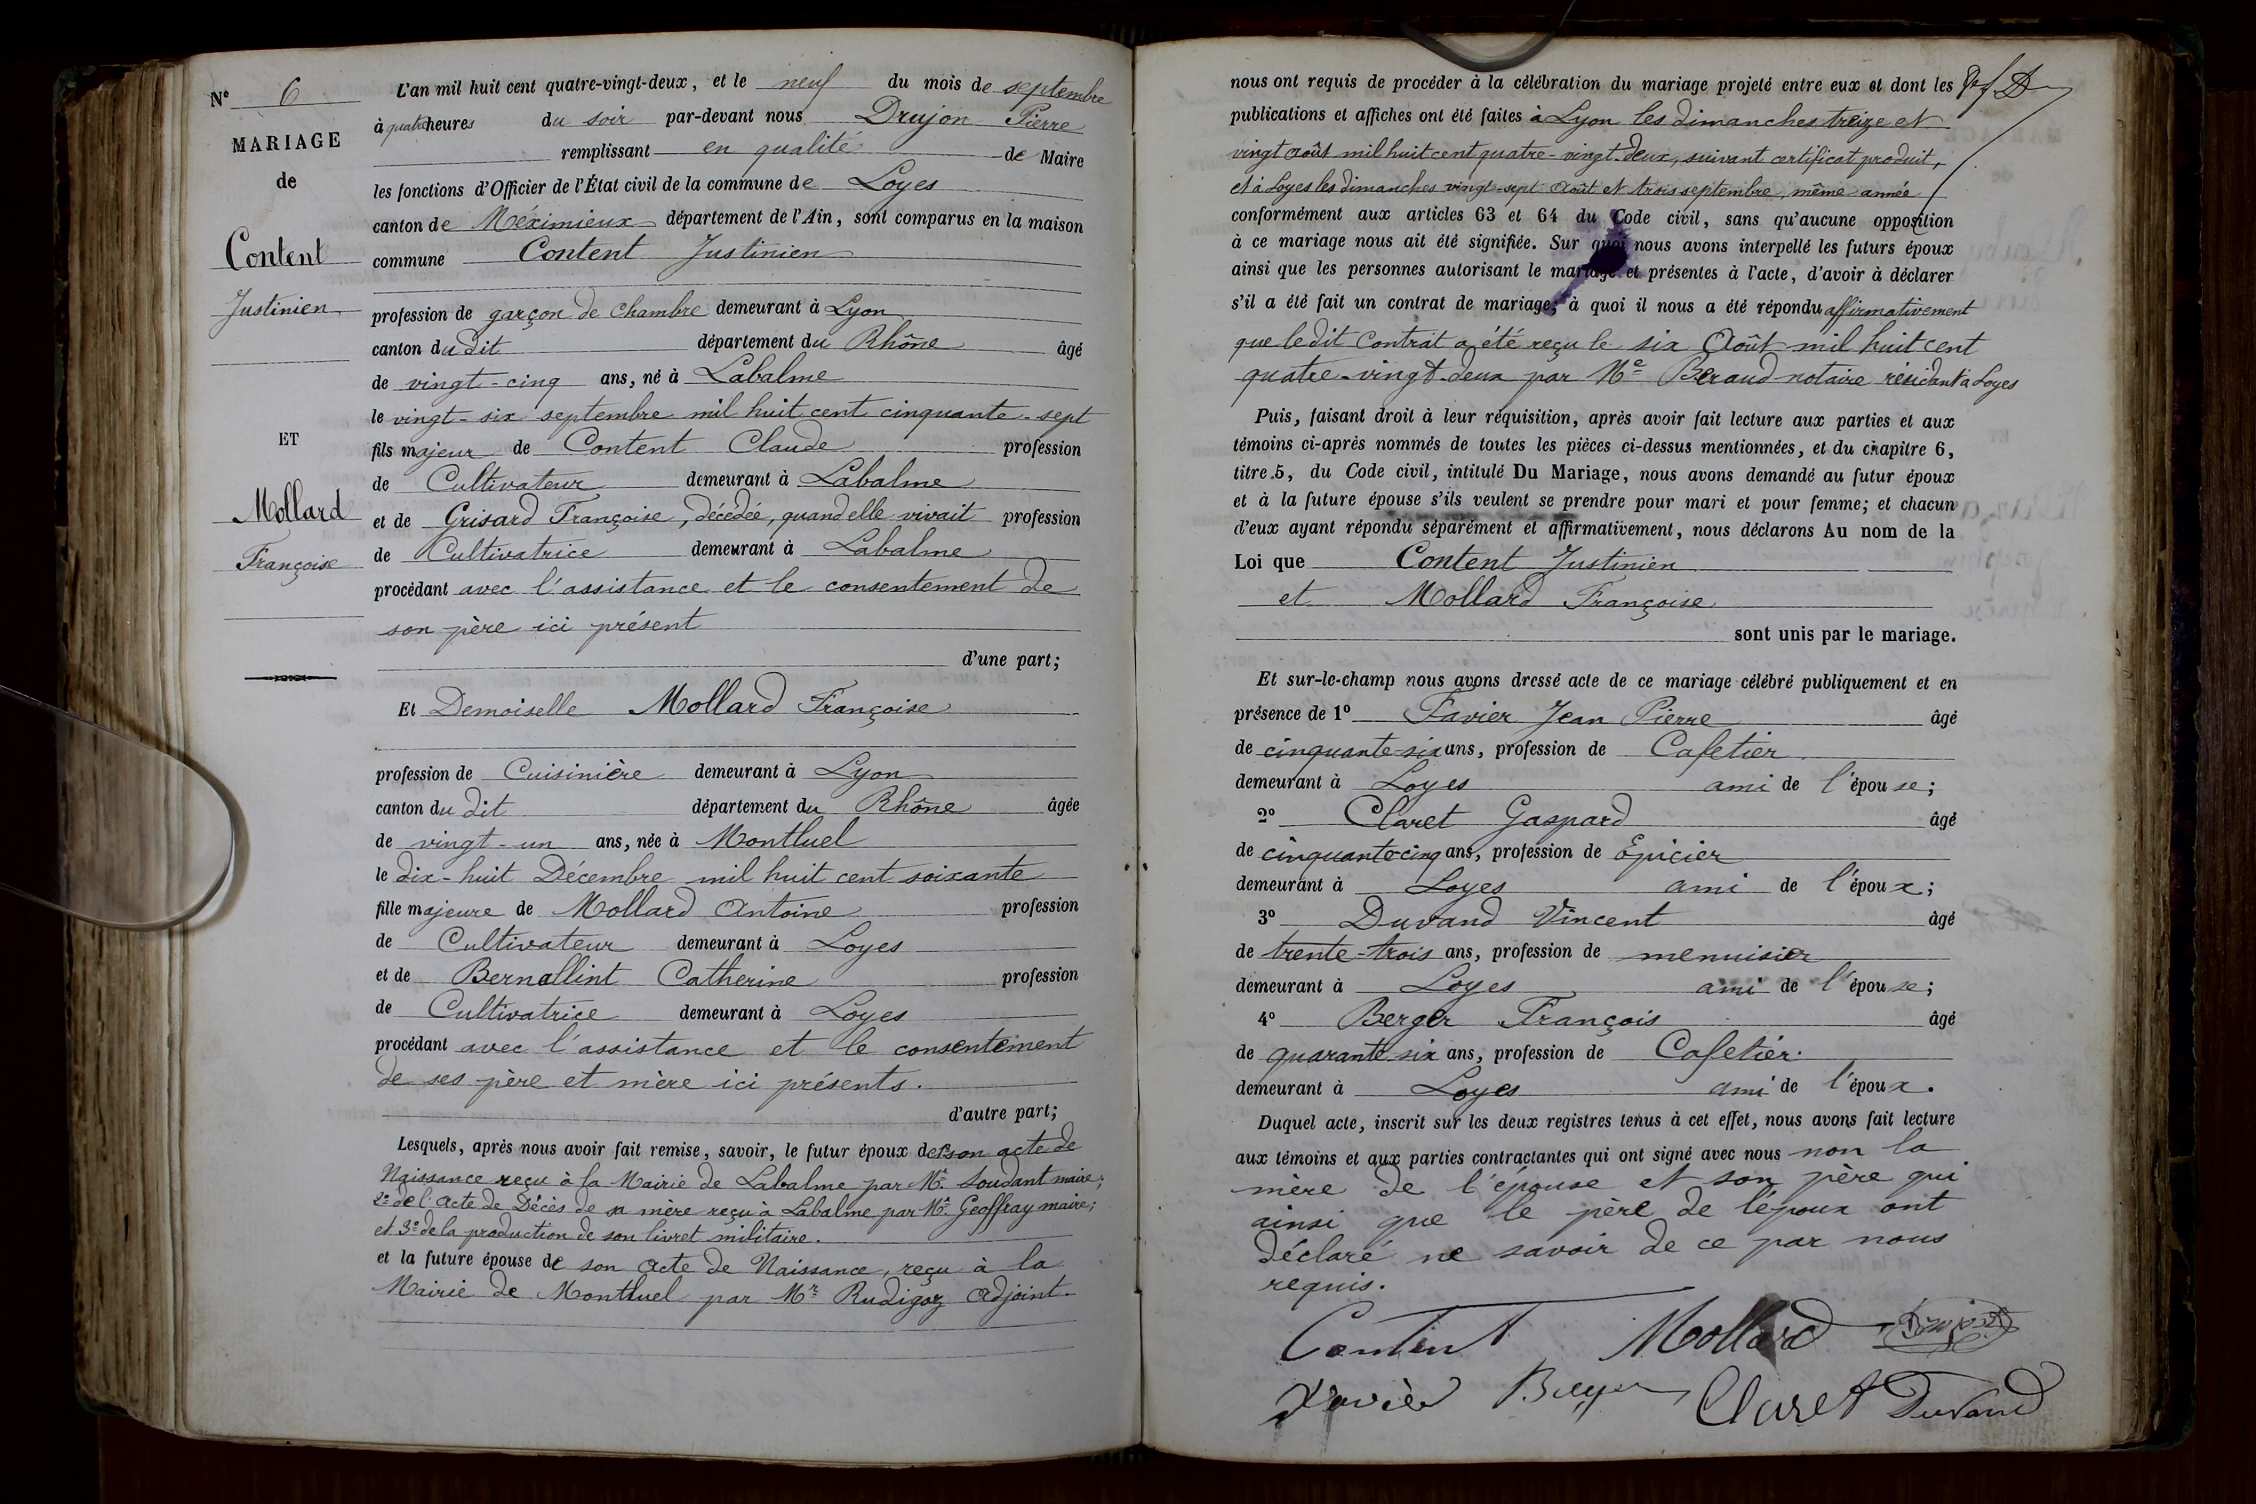 N° 6
MARIAGE
de
Content
Justinien
ET
Mollard
Françoise
L'an mil huit cent quatre-vingt-deux, et le neuf du mois de septembre
à quatre heures du soir par-devant nous Drujon Pierre
remplissant en qualité de Maire
les fonctions d'Officier de l'État civil de la commune de Loyes
canton de Méximieux département de l'Ain, sont comparus en la maison
commune Content Justinien
profession de garçon de chambre demeurant à Lyon
canton du dit département du Rhône âgé
de vingt-cinq ans, né à Labalme
le vingt-six septembre mil huit cent cinquante-sept
fils majeur de Content Claude profession
de Cultivateur demeurant à Labalme
et de Grisard Françoise, décédée, quand elle vivait profession
de Cultivatrice demeurant à Labalme
procédant avec l'assistance et le consentement de
son père ici présent
d'une part;
Et Demoiselle Mollard Françoise
profession de Cuisinière demeurant à Lyon
canton du dit département du Rhône âgée
de vingt-un ans, née à Montluel
le dix-huit Décembre mil huit cent soixante
fille majeure de Mollard Antoine profession
de Cultivateur demeurant à Loyes
et de Bernallint Catherine profession
de Cultivatrice demeurant à Loyes
procédant avec l'assistance et le consentement
de ses père et mère ici présents.
d'autre part;
Lesquels, après nous avoir fait remise, savoir, le futur époux de son acte de
Naissance reçu à la Mairie de Labalme par Mr. Soudant maire;
2° de l'acte de Décès de sa mère reçu à Labalme par Mr. Geoffray maire;
et 3° de la production de son livret militaire.
et la future épouse de son acte de Naissance, reçu à la
Mairie de Montluel par Mr Rudigoz adjoint.
nous ont requis de procéder à la célébration du mariage projeté entre eux et dont les
publications et affiches ont été faites à Lyon les dimanches treize et
vingt août mil huit cent quatre-vingt-deux, suivant certificat produit,
et à Loyes les dimanches vingt-sept Août et trois septembre, même année
conformément aux articles 63 et 64 du Code civil, sans qu'aucune opposition
à ce mariage nous ait été signifiée. Sur quoi nous avons interpellé les futurs époux
ainsi que les personnes autorisant le mariage et présentes à l'acte, d'avoir à déclarer
s'il a été fait un contrat de mariage; à quoi il nous a été répondu affirmativement
que le dit contrat a été reçu le six Août mil huit cent
quatre-vingt-deux par Me Beraud notaire résidant à Loyes
Puis, faisant droit à leur réquisition, après avoir fait lecture aux parties et aux
témoins ci-après nommés de toutes les pièces ci-dessus mentionnées, et du chapitre 6,
titre 5, du Code civil, intitulé Du Mariage, nous avons demandé au futur époux
et à la future épouse s'ils veulent se prendre pour mari et pour femme; et chacun
d'eux ayant répondu séparément et affirmativement, nous déclarons Au nom de la
Loi que Content Justinien
et Mollard Françoise
sont unis par le mariage.
Et sur-le-champ nous avons dressé acte de ce mariage célébré publiquement et en
présence de 1° Favier Jean Pierre âgé
de cinquante-six ans, profession de Cafetier
demeurant à Loyes ami de l'épouse;
2° Claret Gaspard âgé
de cinquante cinq ans, profession de Epicier
demeurant à Loyes ami de l'époux;
3° Duvand Vincent âgé
de trente-trois ans, profession de menuisier
demeurant à Loyes ami de l'épouse;
4° Berger François âgé
de quarante six ans, profession de Cafetier.
demeurant à Loyes ami de l'époux.
Duquel acte, inscrit sur les deux registres tenus à cet effet, nous avons fait lecture
aux témoins et aux parties contractantes qui ont signé avec nous non la
mère de l'épouse et son père qui
ainsi que le père de l'époux ont
déclaré ne savoir de ce par nous
requis.
Content Mollard Drujon
Favier Berger Claret Duvand